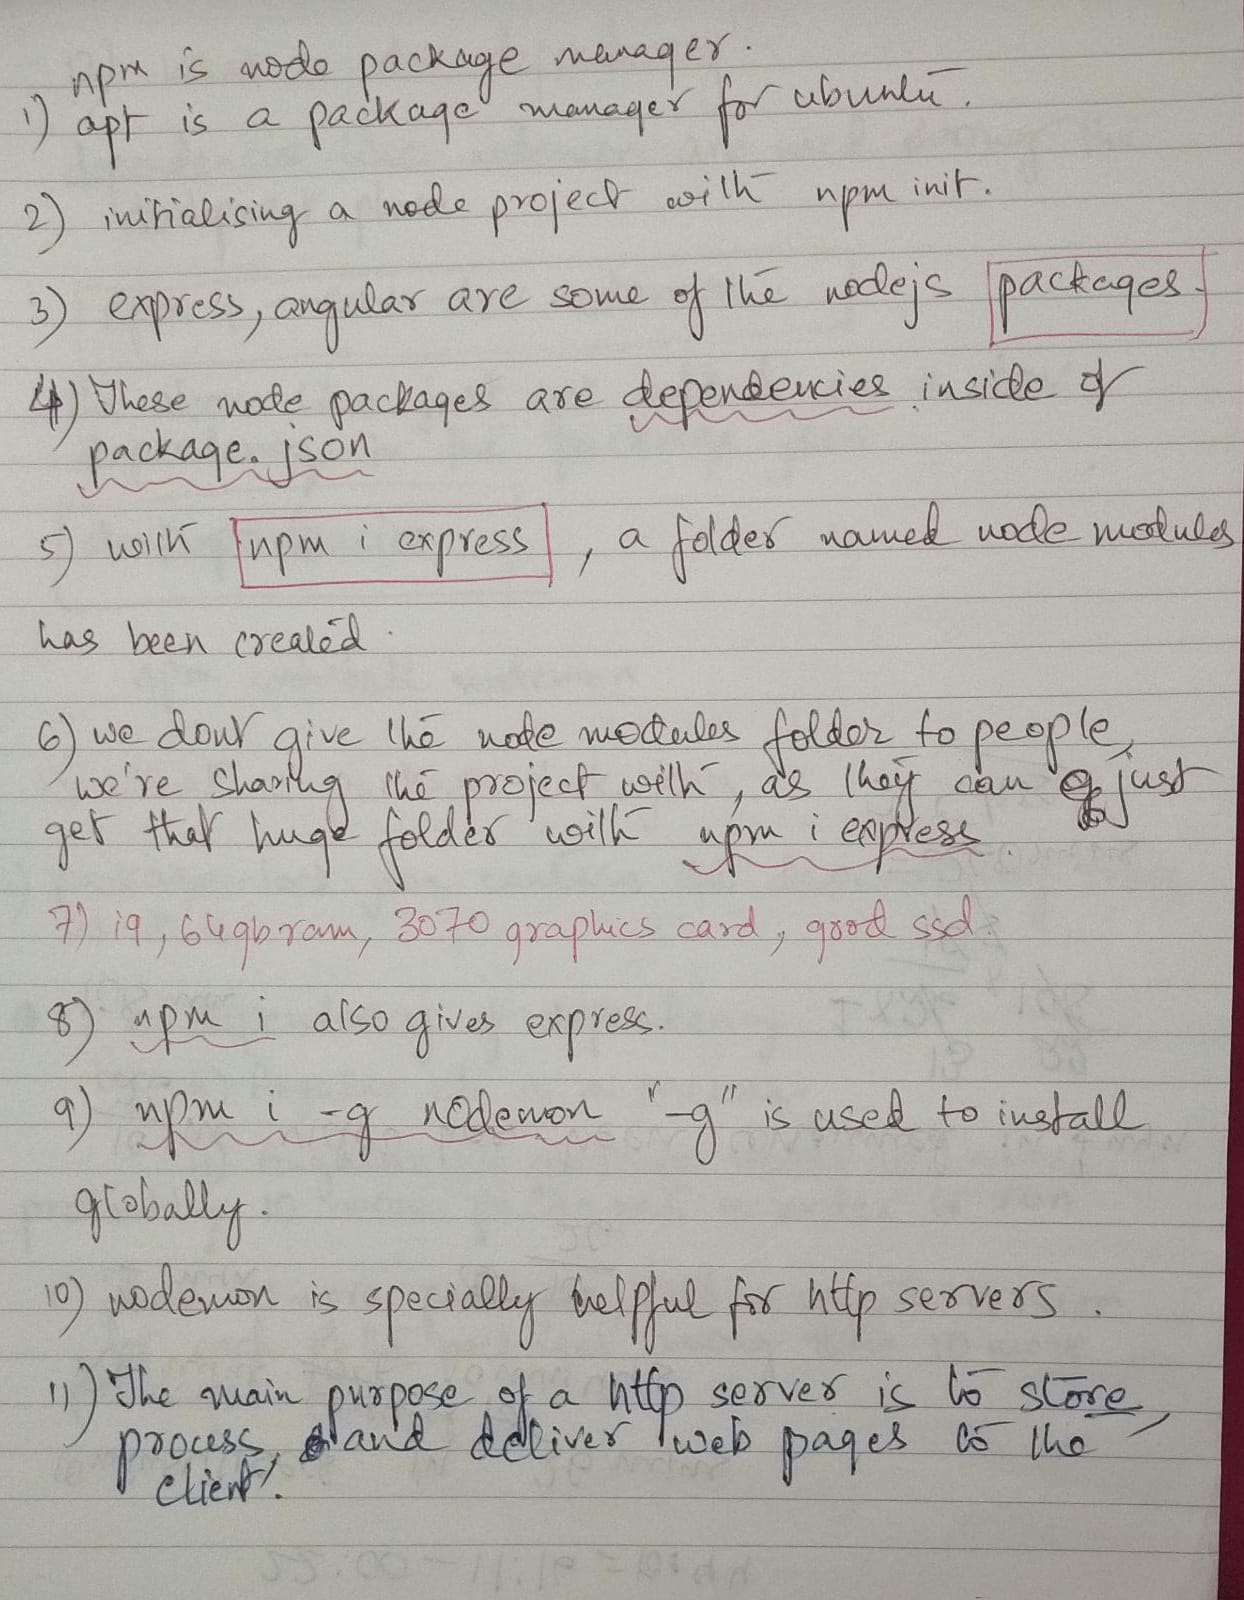 npm is node package manager.
1) apt is a package manager for ubuntu.
2) initialising a node project with npm init.
3) express, angular are some of the nodejs packages.
4) These node packages are dependencies inside of
package.json
5) with npm i express, a folder named node modules
has been created.
6) we dont give the node modules folder to people,
we're sharing the project with, as they can just
get that huge folder with npm i express.
7) i9, 64gb ram, 3070 graphics card, good ssd.
8) npm i also gives express.
9) npm i -g nodemon "-g" is used to install
globally.
10) nodemon is specially helpful for http servers.
11) The main purpose of a http server is to store,
process, and deliver web pages to the
client.